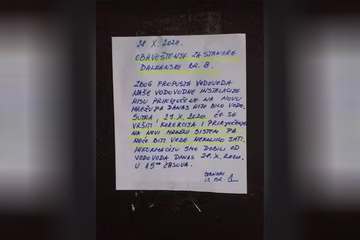 28. X. 2020.
OBAVEŠTENJE ZA STANARE
BALKANSKE BR. 8.
ZBOG PROPUSTA VODOVODA
NAŠE VODOVODNE INSTALACIJE
NISU PRIKLJUČENE NA NOVU
MREŽU PA DANAS NIJE BILO VODE.
SUTRA, 29. X. 2020. ĆE SE
VRŠITI KOREKCIJA I PRIKLJUČENJE
NA NOVI MREŽNI SISTEM PA
NEĆE BITI VODE NEKOLIKO SATI.
INFORMACIJU SMO DOBILI OD
VODOVODA DANAS 28. X. 2020.
U 15 ČASOVA.
STANARI
IZ BR. 1